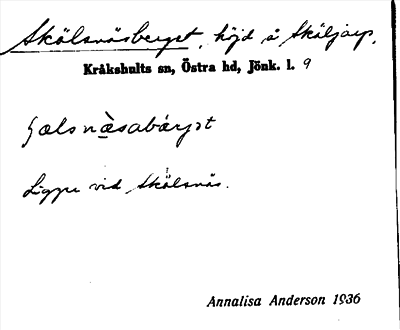 Skälsnäsberget, höjd å Skäljarp.
Kråkshults sn, Östra hd, Jönk. l. 9
ʂælsnæ̀sabárjət
Ligger vid Skälsnäs.
Annalisa Anderson 1936